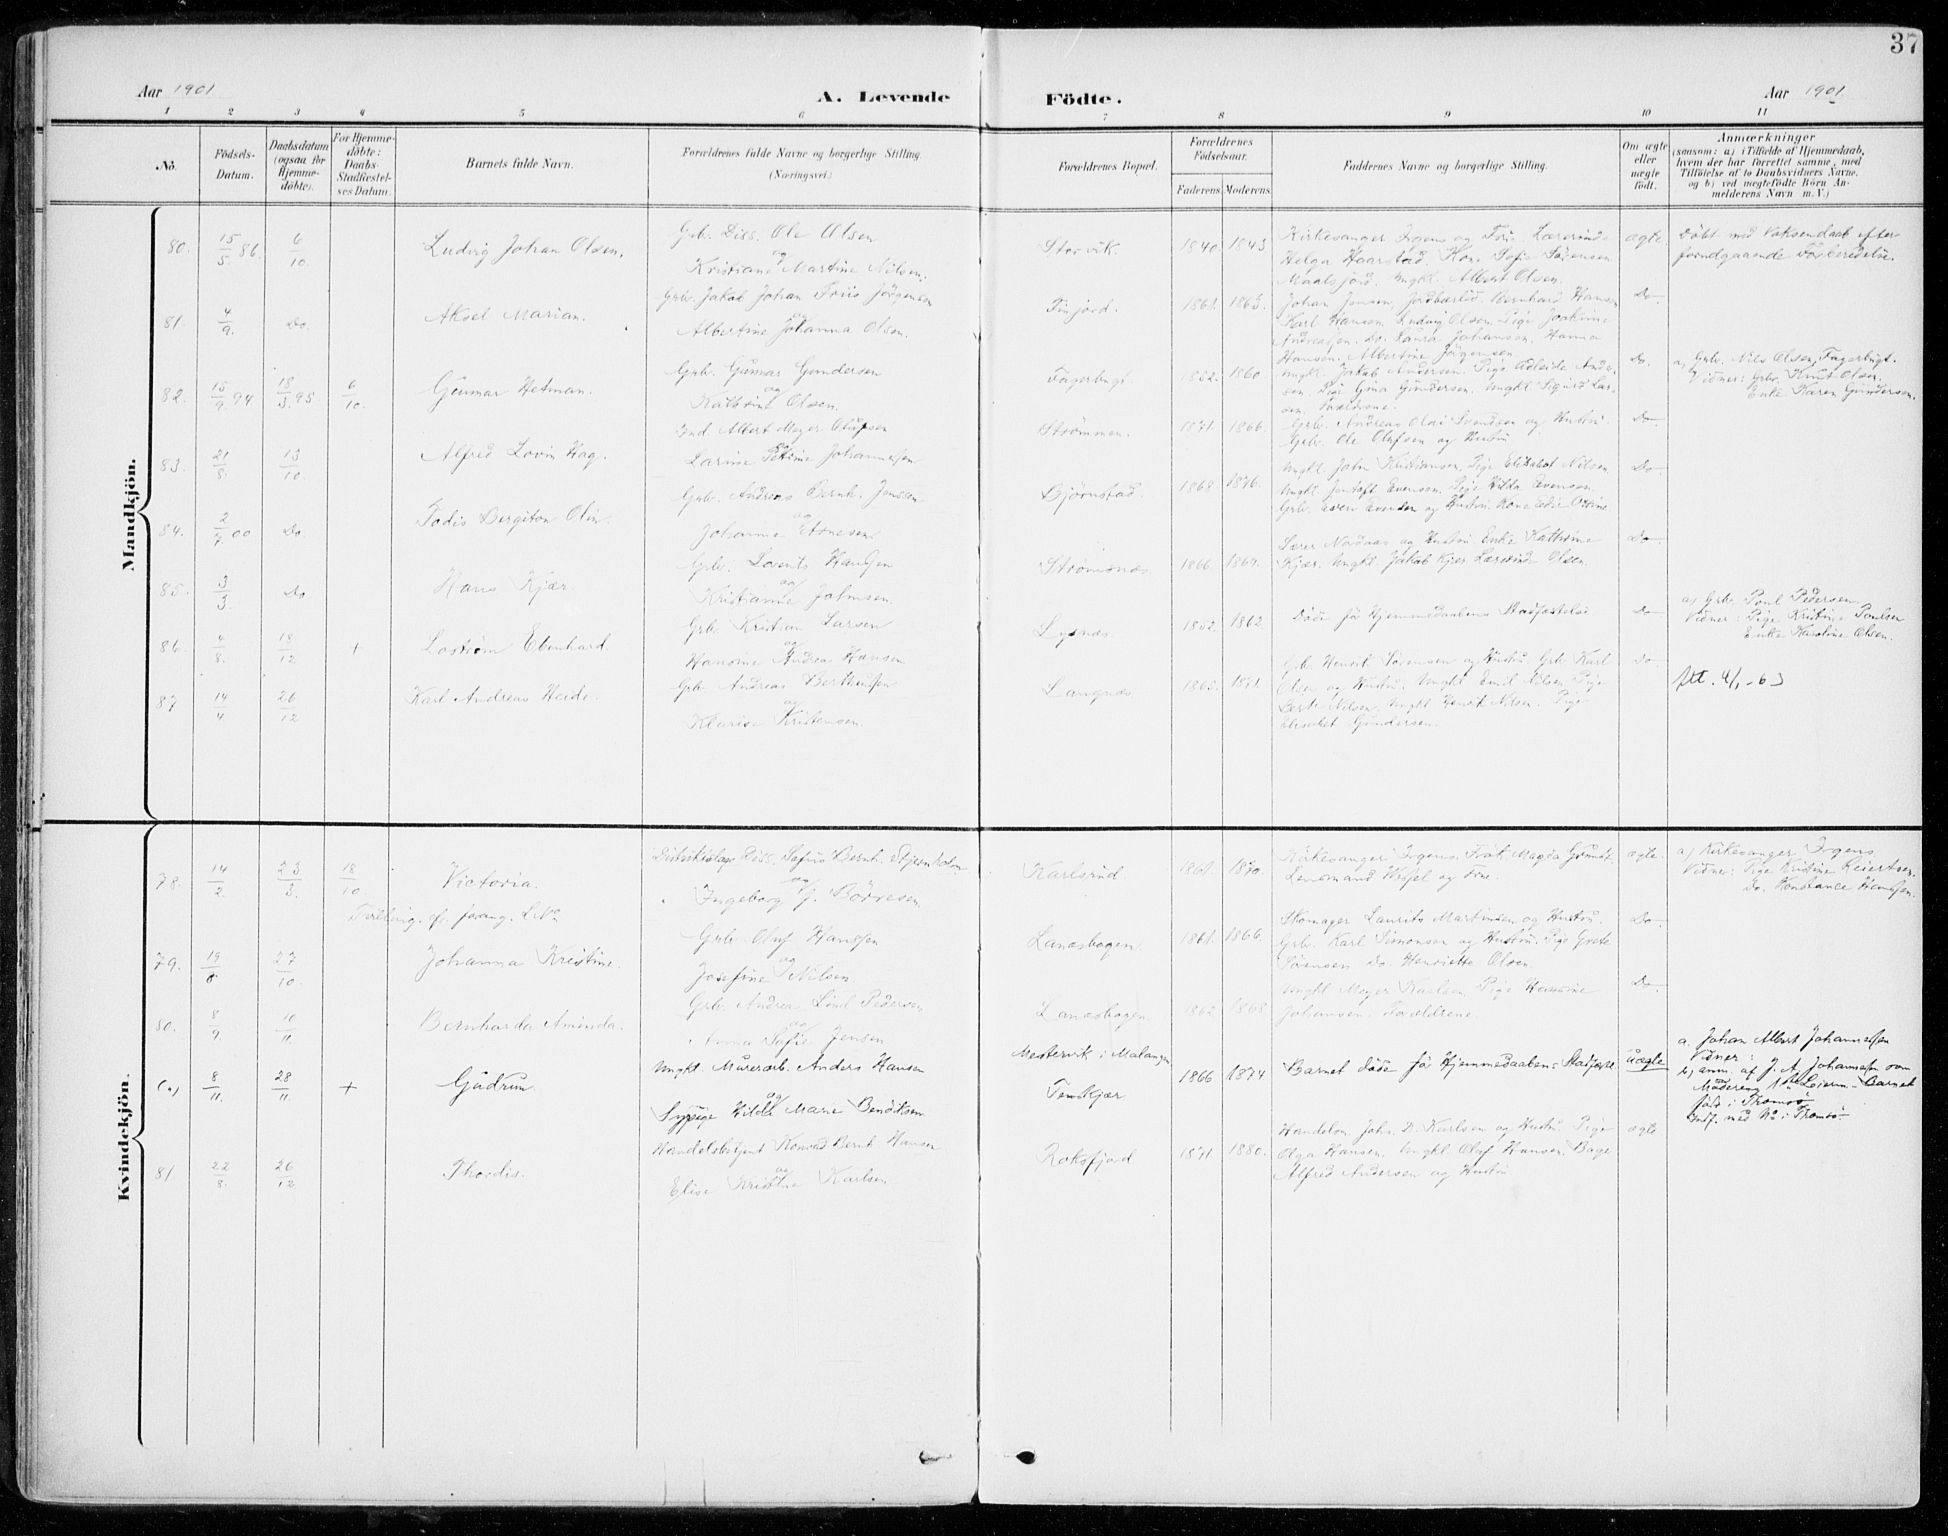 37
Aar 1901
A. Levende Födte.
Aar 1901
1 2 3 4 5 6 7 8 9 10 11
No.
Födsels-Datum.
Daabsdatum (ogsaa for Hjemme-döbte).
For Hjemme-döbte: Daabs-Stadfæstel-ses Datum.
Barnets fulde Navn.
Forældrenes fulde Navne og borgerlige Stilling. (Næringsvei.)
Forældrenes Bopæl.
Forældrenes Födselsaar.
Faderens. Moderens.
Faddernes Navne og borgerlige Stilling.
Om ægte eller uægte födt.
Anmærkninger
(saasom: a) i Tilfælde af Hjemmedaab,
hvem der har forrettet samme, med
Tilföielse af to Daabsvidners Navne,
og b) ved uægtefödte Börn An-
melderens Navn m. V.)
Mandkjön.
80. 15/5 86 6/10 Ludvig Johan Olsen.
Grb. Diss. Ole Olsen
og
Kristiane Martine Nilsen.
Storvik. 1840. 1843
Kirkesanger Irgens og Frue. Lærerinde
Helga Haarstad. Kon. Sofie Sørensen
Maalsjord. Ungk. Albert Olsen.
ægte.
Döbt med Voksendaab efter
forudgaaende Forberedelse.
81. 4/9. Do. Aksel Marian.
Grb. Jakob Johan Friis Jörgensen
og
Albertine Johanna Olsen.
Finjord. 1861. 1865.
Johan Jensen, Bernhard Hansen
Karl Hansen. Ludvig Olsen. Pige
Andreassen. Do. Laura Johansen. Hanna
Hansen. Albertine Jörgensen
Do.
82. 15/9 94 18/3 95 6/10. Gunnar Hetman.
Grb. Gunnar Gundersen
og
Kathrine Olsen.
Fagerbugt. 1852. 1860
Ungk. Jakob Andersen. Pige Adleide Ander-
sen. Pige Gina Gundersen. Ungkl Sigurd Lar-
sen. Forældrene.
Do.
a, Grb. Nils Olsen, Fagerbugt.
Vidner: Grb. Knut Olsen.
Enke Karen Gundersen.
83. 21/8 13/10 Alfred Lovin Hag.
Ind. Albert Meyer Olufsen
og
Larine Petrine Johannessen
Strømmen. 1871. 1866.
Grb. Andreas Olai Svendsen og Hustru.
Grb. Ole Olufsen og Hustru
Do.
84. 2/7 00 Do Todis Bergiton Olin.
Grb. Andreas Bernh. Jenssen
og
Johanna
Bjørnstad. 1868. 1876.
Ungkl. John Kristiansen, Pige Elisabet Nilsen
Ungkl. Evensen. Pige Hilda Evensen.
Do
85. 3/3. Do Hans Kjær.
Grb. Lorents Hansen
og
Kristianne Johnsen.
Strømsnæs 1866 1867.
Lærer Nordnæs og Hustru Enke Kathrine
Kjær. Ungkl. Jakob Kjær Lærerinde Olsen.
Do.
86. 4/8. 18/12 + Lostrøm Ebenhard
Grb. Kristian Larsen
og
Hansine Andrea Hansen
Lysnæs. 1852. 1862
Døde før Hjemmedaabens Stadfæstelse
Do
a, Grb. Poul Pedersen.
Vidner: Pige Kristine Paulsen
Enke Karoline Olsen.
87 14/4 26/12 Karl Andreas Heide.
Grb. Andreas Berthensen
og
Klarise Kristensen.
Langnæs 1865. 1871.
Grb. Henrik Sørensen og Hustru Grb Karl
Olsen og Hustru. Ungkl Emil Nilsen Pige
Berte Nilsen. Ungkl Henrik Nilsen. Pige
Elisabet Gundersen.
Do
Att. 4/1 -63
Kvindekjön.
78. 14/2 23/3 18/10 Victoria.
Distriktslæge Diss. Søfus Bernh. Stjernholm
og
Ingeborg J. Börresen
Karlsrud. 1861. 1870.
Kirkesanger Irgens. Frøk. Magda
Lensmand Wessel og Frue.
ægte.
a, Kirkesanger Irgens
Vidner: Pige Kristine Leiertsen
Do. Konstance Hanssen.
Tvilling. forang. L.No
79. 19/8 27/10. Johanna Kristine.
Grb. Oluf Hanssen
og
Josefine Nilsen
Lanæsbogen 1861. 1866.
Skomager Laurits Martinsen og Hustru.
Grb. Karl Simonsen og Hustru. Pige Grete
Sørensen Do. Henriette Olsen.
Do
80. 8/9 10/11. Bernharda Aminda.
Grb. Andreas Lind Pedersen
og
Anna Sofie Jensen
Lanæsbogen 1862 1868
Ungkl Meyer Karlsen Pige Hansine
Johansen. Forældrene.
Do.
(a) 8/11. 28/11. + Gudrun.
Ungkl. Murerarb. Anders Hansen
og
Sypige Hilda Marie Bendiksen
Mestervik i Malangen
Tennskjær 1866 1874
Barnet døde før Hjemmedaabens Stadfæst.
Uægte
a. Johan Albert Johannessen
Vidner:
b, anm. af J. A. Johannesen som
Moderens 1ste Leierm - Barnet
født i Tromsø
Indf. med No i Tromsø
81 22/8. 26/12 Thordis.
Handelsbetjent Konrad Bernt Hansen
og
Elise Kristine Karlsen
Roksfjord 1871 1880.
Handelsm. Johs. D. Karlsen og Hustru Pige
Olga Hansen. Ungkl Oluf Hansen. Bager
Alfred Andersen og Hustru
ægte